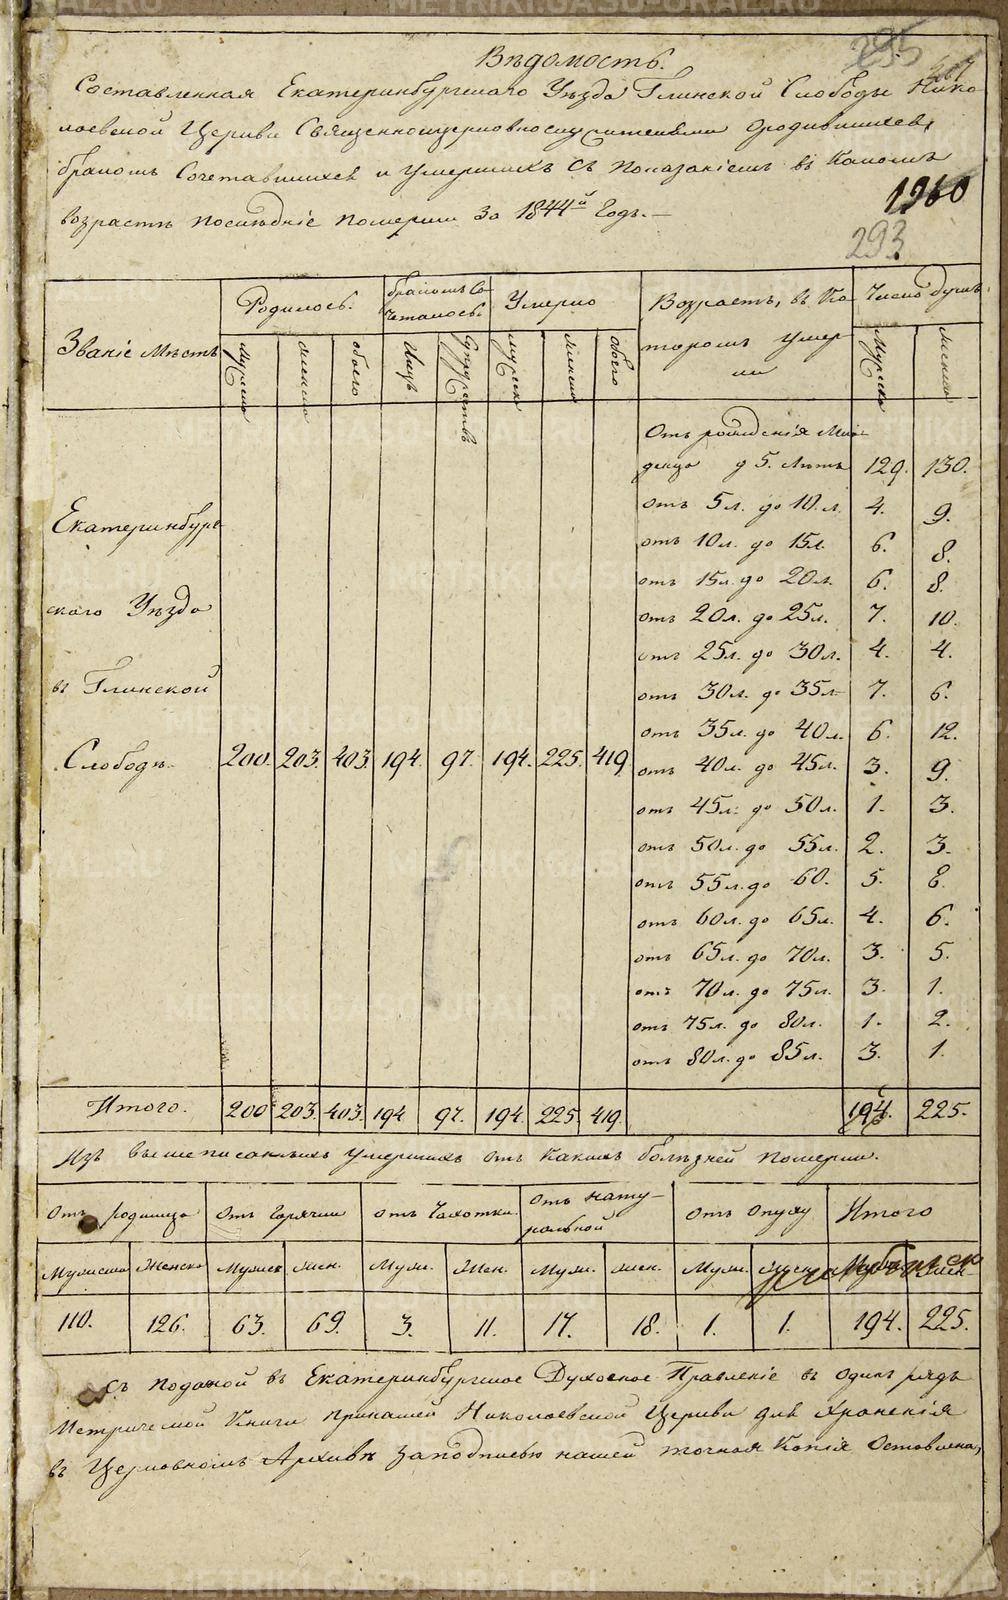 295
Вѣдомость.
Составленная Екатеринбургскаго Уѣзда Глинской Слободы Нико
лаевской Церкви Священноцерковнослужителями о родившихся,
бракомъ Сочетавшихся и Умершихъ Съ Показаніемъ въ Какомъ
1960
возрастѣ послѣдніе Померли За 1844й Годъ.—
293
Званіе Мѣстъ
Родилось.
бракомъ Со
четалось.
Умерло
Возрастъ, въ Ко
торомъ умер
ли
Число душъ.
Мужска
женска
обоего
Лицъ
Супружествъ
мужска
женска
обоего
Мужска
женска
Отъ рожденія Мла
денца д 5. лѣтъ 129. 130.
отъ 5л. до 10.л. 4. 9.
отъ 10л. до 15л. 6. 8.
отъ 15л. до 20л. 6. 8.
отъ 20л. до 25л. 7. 10.
отъ 25л. до 30л. 4. 4.
отъ 30л. до 35л 7. 6.
отъ 35л. до 40л. 6. 12.
отъ 40л. до 45л. 3. 9.
отъ 45л. до 50л. 1. 3.
отъ 50л. до 55л. 2. 3.
отъ 55л. до 60. 5. 8.
отъ 60л. до 65л. 4. 6.
отъ 65л. до 70л. 3. 5.
отъ 70л. до 75л. 3. 1.
отъ 75л. до 80л. 1. 2.
отъ 80л. до 85л. 3. 1.
Екатеринбург
скаго Уѣзда
въ Глинской
Слободѣ. 200. 203. 403. 194. 97. 194. 225. 419
Итого. 200 203. 403. 194 97. 194. 225. 419. 194. 225.
Изъ вышеписанныхъ Умершихъ отъ Какихъ болѣзней Померли.
Отъ родимца
Отъ Горячки
отъ Чахотки
Отъ нату-
ральной
отъ опуху
Итого
Мужска Женска Мужск жен. Муж. Жен. Муж. жен. Муж. жен.
110. 126. 63. 69. 3. 11. 17. 18. 1. 1. 194. 225.
Съ поданой въ Екатеринбургское Духовное Правленіе въ одинъ рядъ
Метрической Книги Причашей Николаевской Церкви для Храненія
въ Церковномъ Архивѣ За подписью нашей точная Копія Оставлена,
METRIKI.GASO-URAL.RU